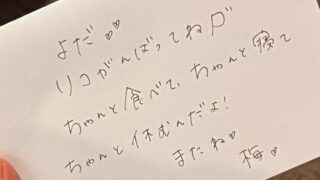 よだ♡♡
リコがんばってね
ちゃんと食べて、ちゃんと寝て
ちゃんと休むんだよ!
またね♡
梅♡